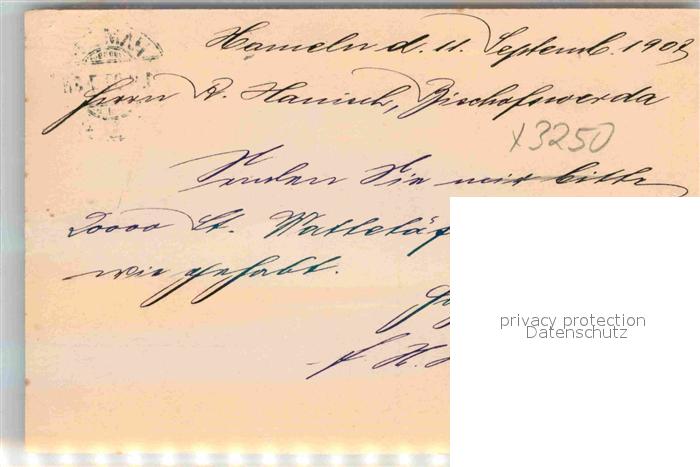 Hameln d. 11. Septemb. 1903
Herrn R. Hanisch, Bischofswerda
x3250
Senden Sie mir bitte
20000 St.
wie gehabt.
privacy protection
Datenschutz